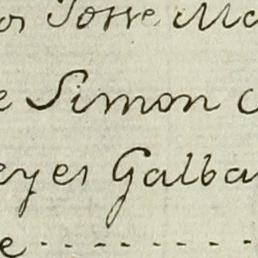 os Josse Ma
e Simon c
eyes Galba
e - - - - - - - -